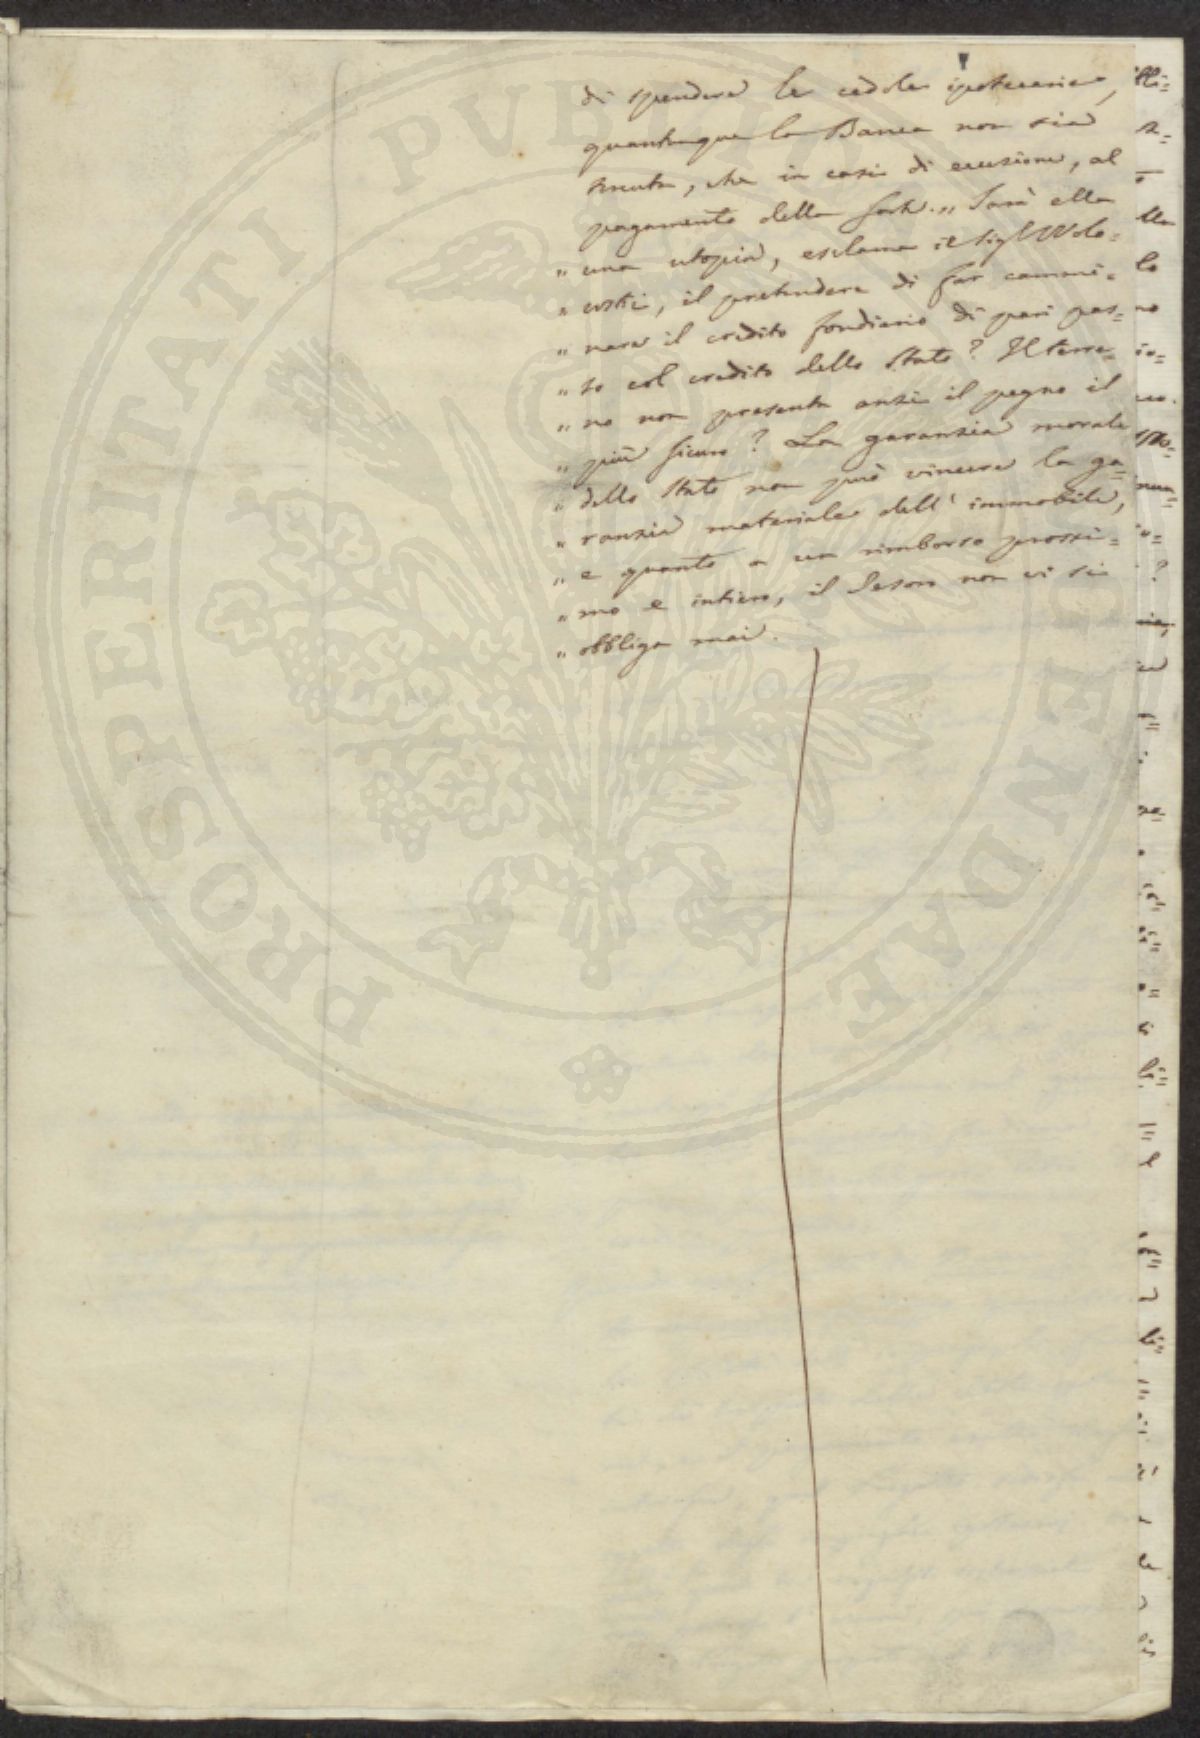 di spendere le cedole ipotecarie,
quantunque la Banca non sia
tenuta, che in casi di eccezione, al
pagamento della sorte. „ Sarà ella
„ una utopia, esclama il Sig.r Wolo=
„ wski, il pretendere di far cammi=
„ nare il credito fondiario di pari pas=
„ so col credito dello Stato? Il terre=
„ no non presenta anzi il pegno il
„ più sicuro? La garanzia morale
„ dello Stato non può vincere la ga=
„ ranzia materiale dell' immobile,
„ e quanto a un rimborso prossi=
„ mo e intiero, il Tesoro non vi si
„ obbliga mai.
PROSPERITATI PUBLICAE AUGENDAE